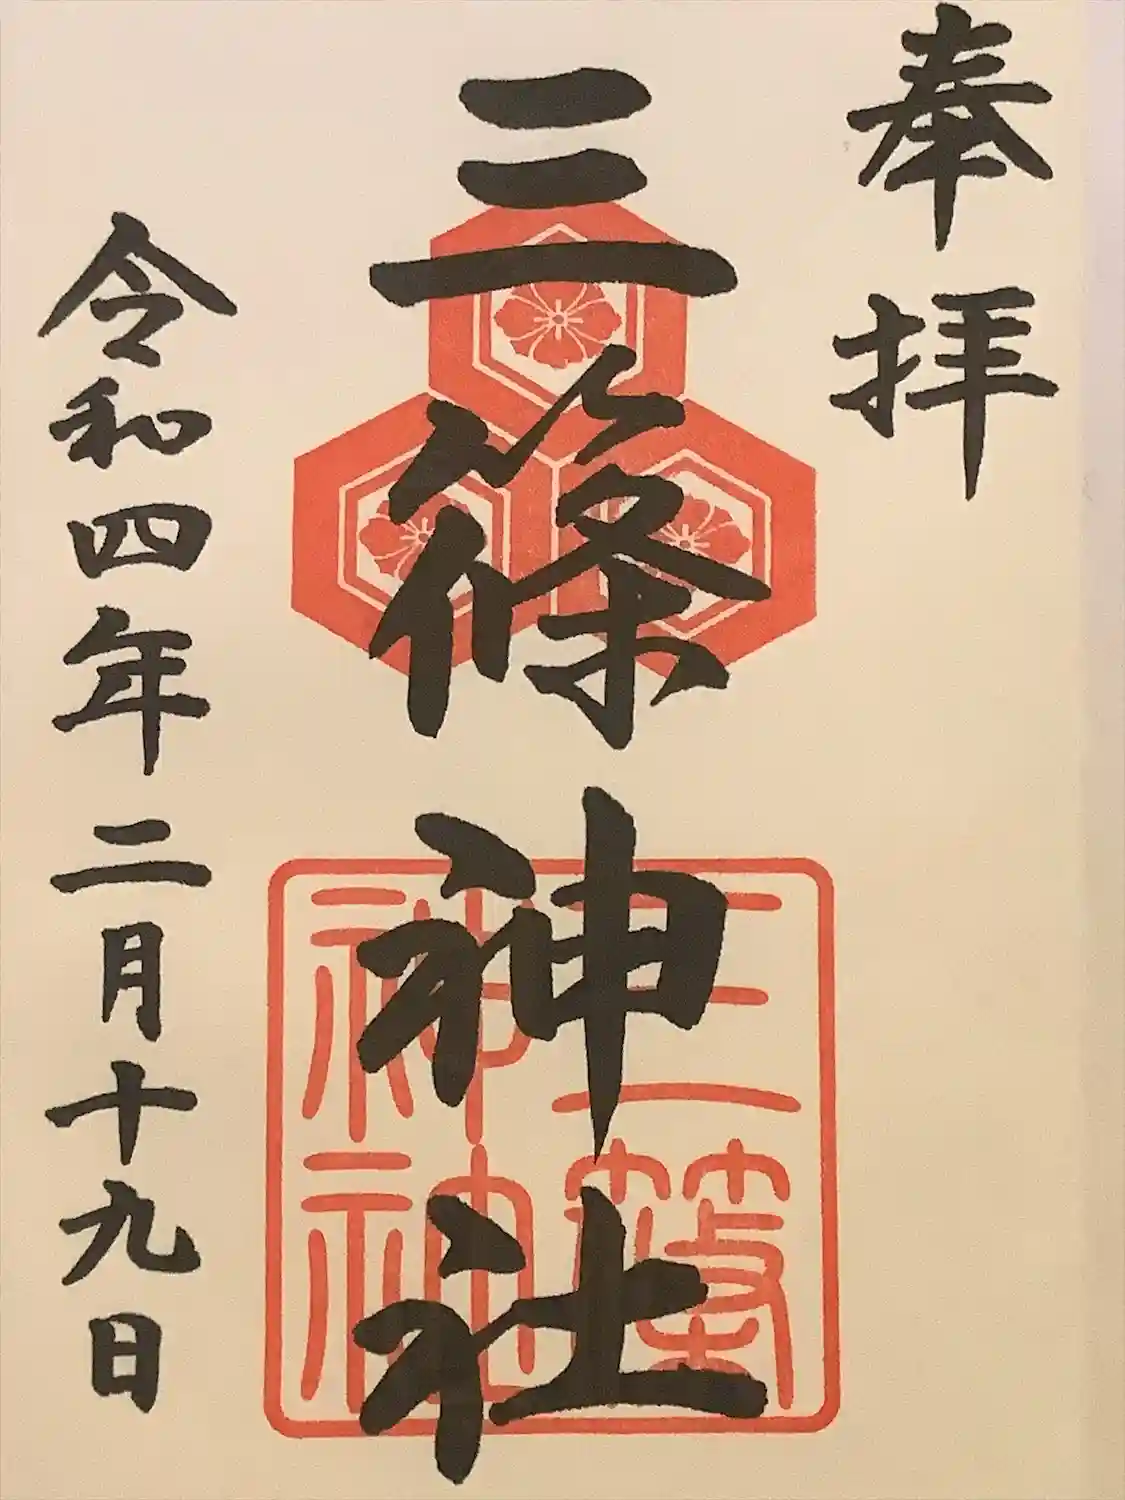 奉拝
三篠神社
令和四年二月十九日
三篠神社